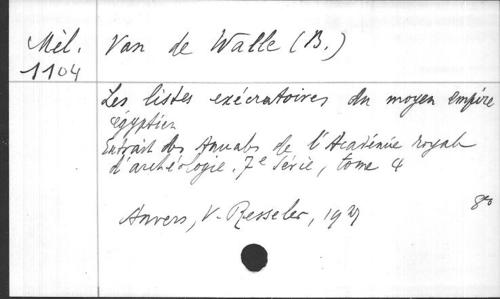 Mél.
1104
Van de Walle (B.)
Les listes exécratoires du moyen empire
égyptien
Extrait des Annales de l'Académie royale
d'archéologie. 7e série, tome 4
Anvers, V. Resseler, 1927
8vo